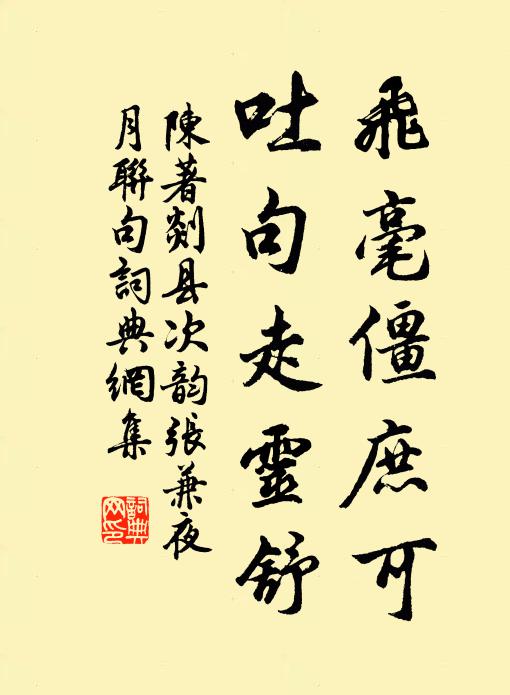 飛毫僵庶可
吐句走靈舒
陳著剡县次韵張兼夜
月聯句詞典網集
詞典
网印